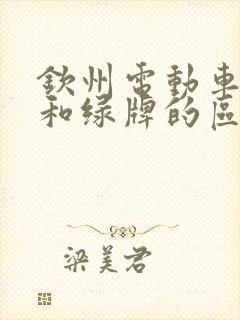 欽州電動車
和綠牌的區
梁美君